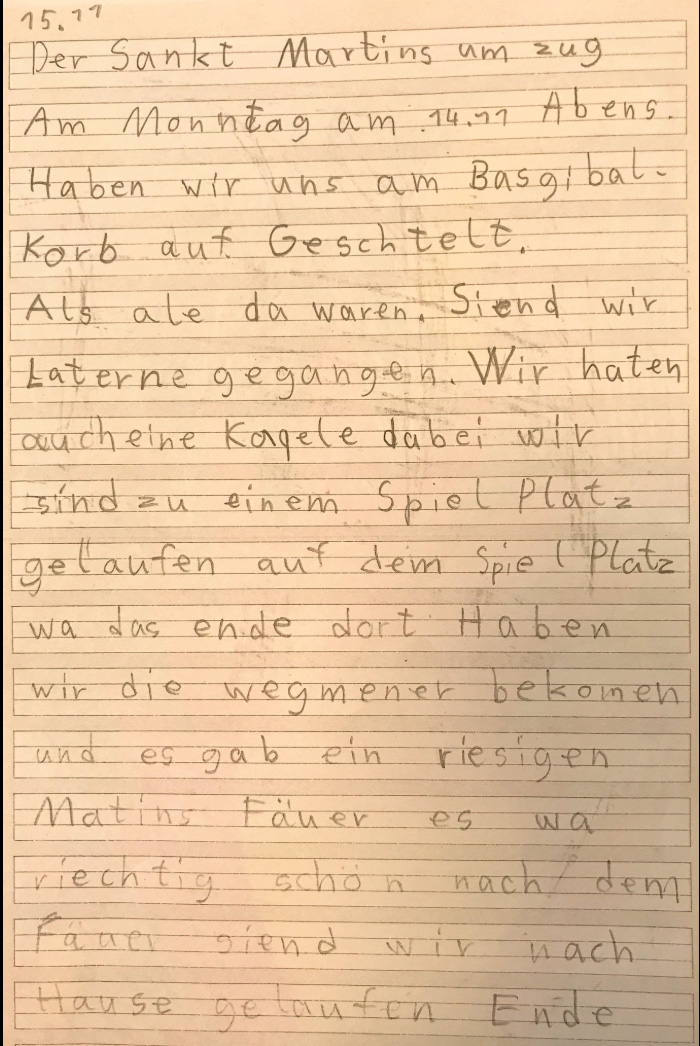 15.11
Der Sankt Martins um zug
Am Monntag am 14.11 Abens.
Haben wir uns am Basgibal-
Korb auf Geschtelt.
Als ale da waren. Siend wir
Laterne gegangen. Wir haten
auch eine Kagele dabei wir
sind zu einem Spiel Platz
gelaufen auf dem Spiel Platz
wa das ende dort Haben
wir die wegmener bekomen
und es gab ein riesigen
Matins Fäuer es wa
riechtig schön nach dem
Fäuer siend wir nach
Hause gelaufen Ende